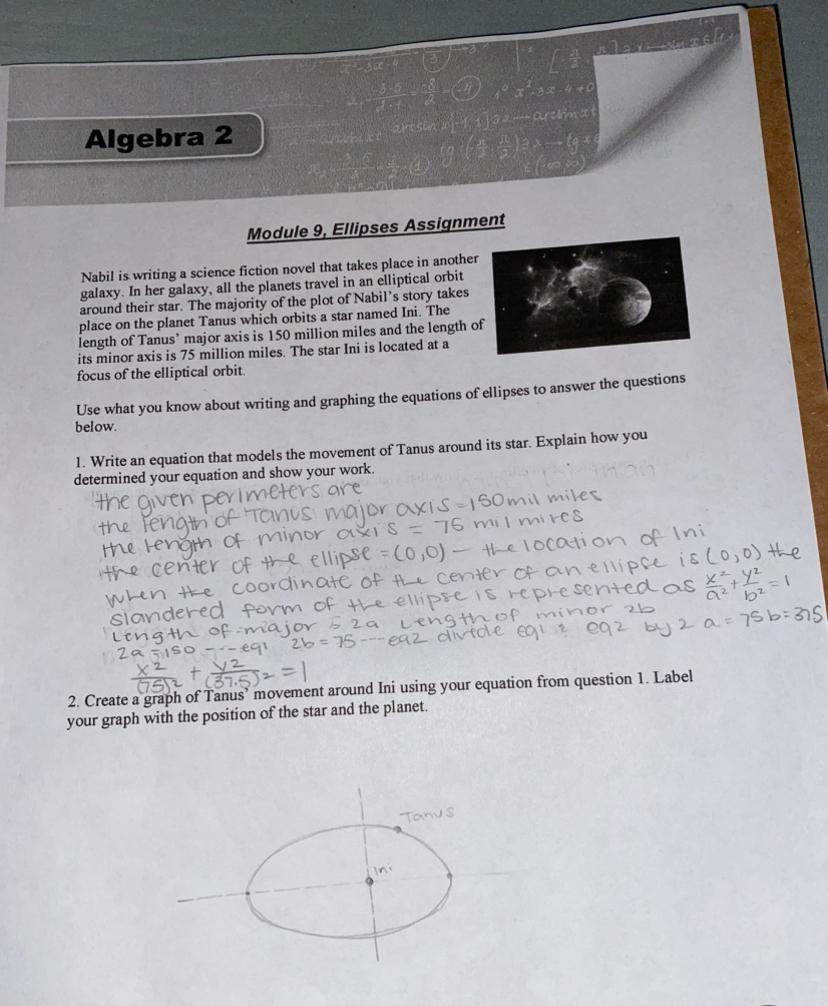 Algebra 2
Module 9, Ellipses Assignment
Nabil is writing a science fiction novel that takes place in another
galaxy. In her galaxy, all the planets travel in an elliptical orbit
around their star. The majority of the plot of Nabil's story takes
place on the planet Tanus which orbits a star named Ini. The
length of Tanus' major axis is 150 million miles and the length of
its minor axis is 75 million miles. The star Ini is located at a
focus of the elliptical orbit.
Use what you know about writing and graphing the equations of ellipses to answer the questions
below.
1. Write an equation that models the movement of Tanus around its star. Explain how you
determined your equation and show your work.
the given perimeters are
the length of Tanus major axis = 150 mil miles
the length of minor axis = 75 mil mires
the center of the ellipse = (0,0) – the location of Ini
when the coordinate of the center of an ellipse is (0,0) the
slandered form of the ellipse is represented as x²/a² + y²/b² = 1
Length of major = 2a Length of minor 2b
2a = 150 --- eq1 2b = 75 --- eq2 divide eq1 & eq2 by 2 a = 75 b = 375
x²/(75)² + y²/(37.5)² = 1
2. Create a graph of Tanus' movement around Ini using your equation from question 1. Label
your graph with the position of the star and the planet.
Tanus
Ini